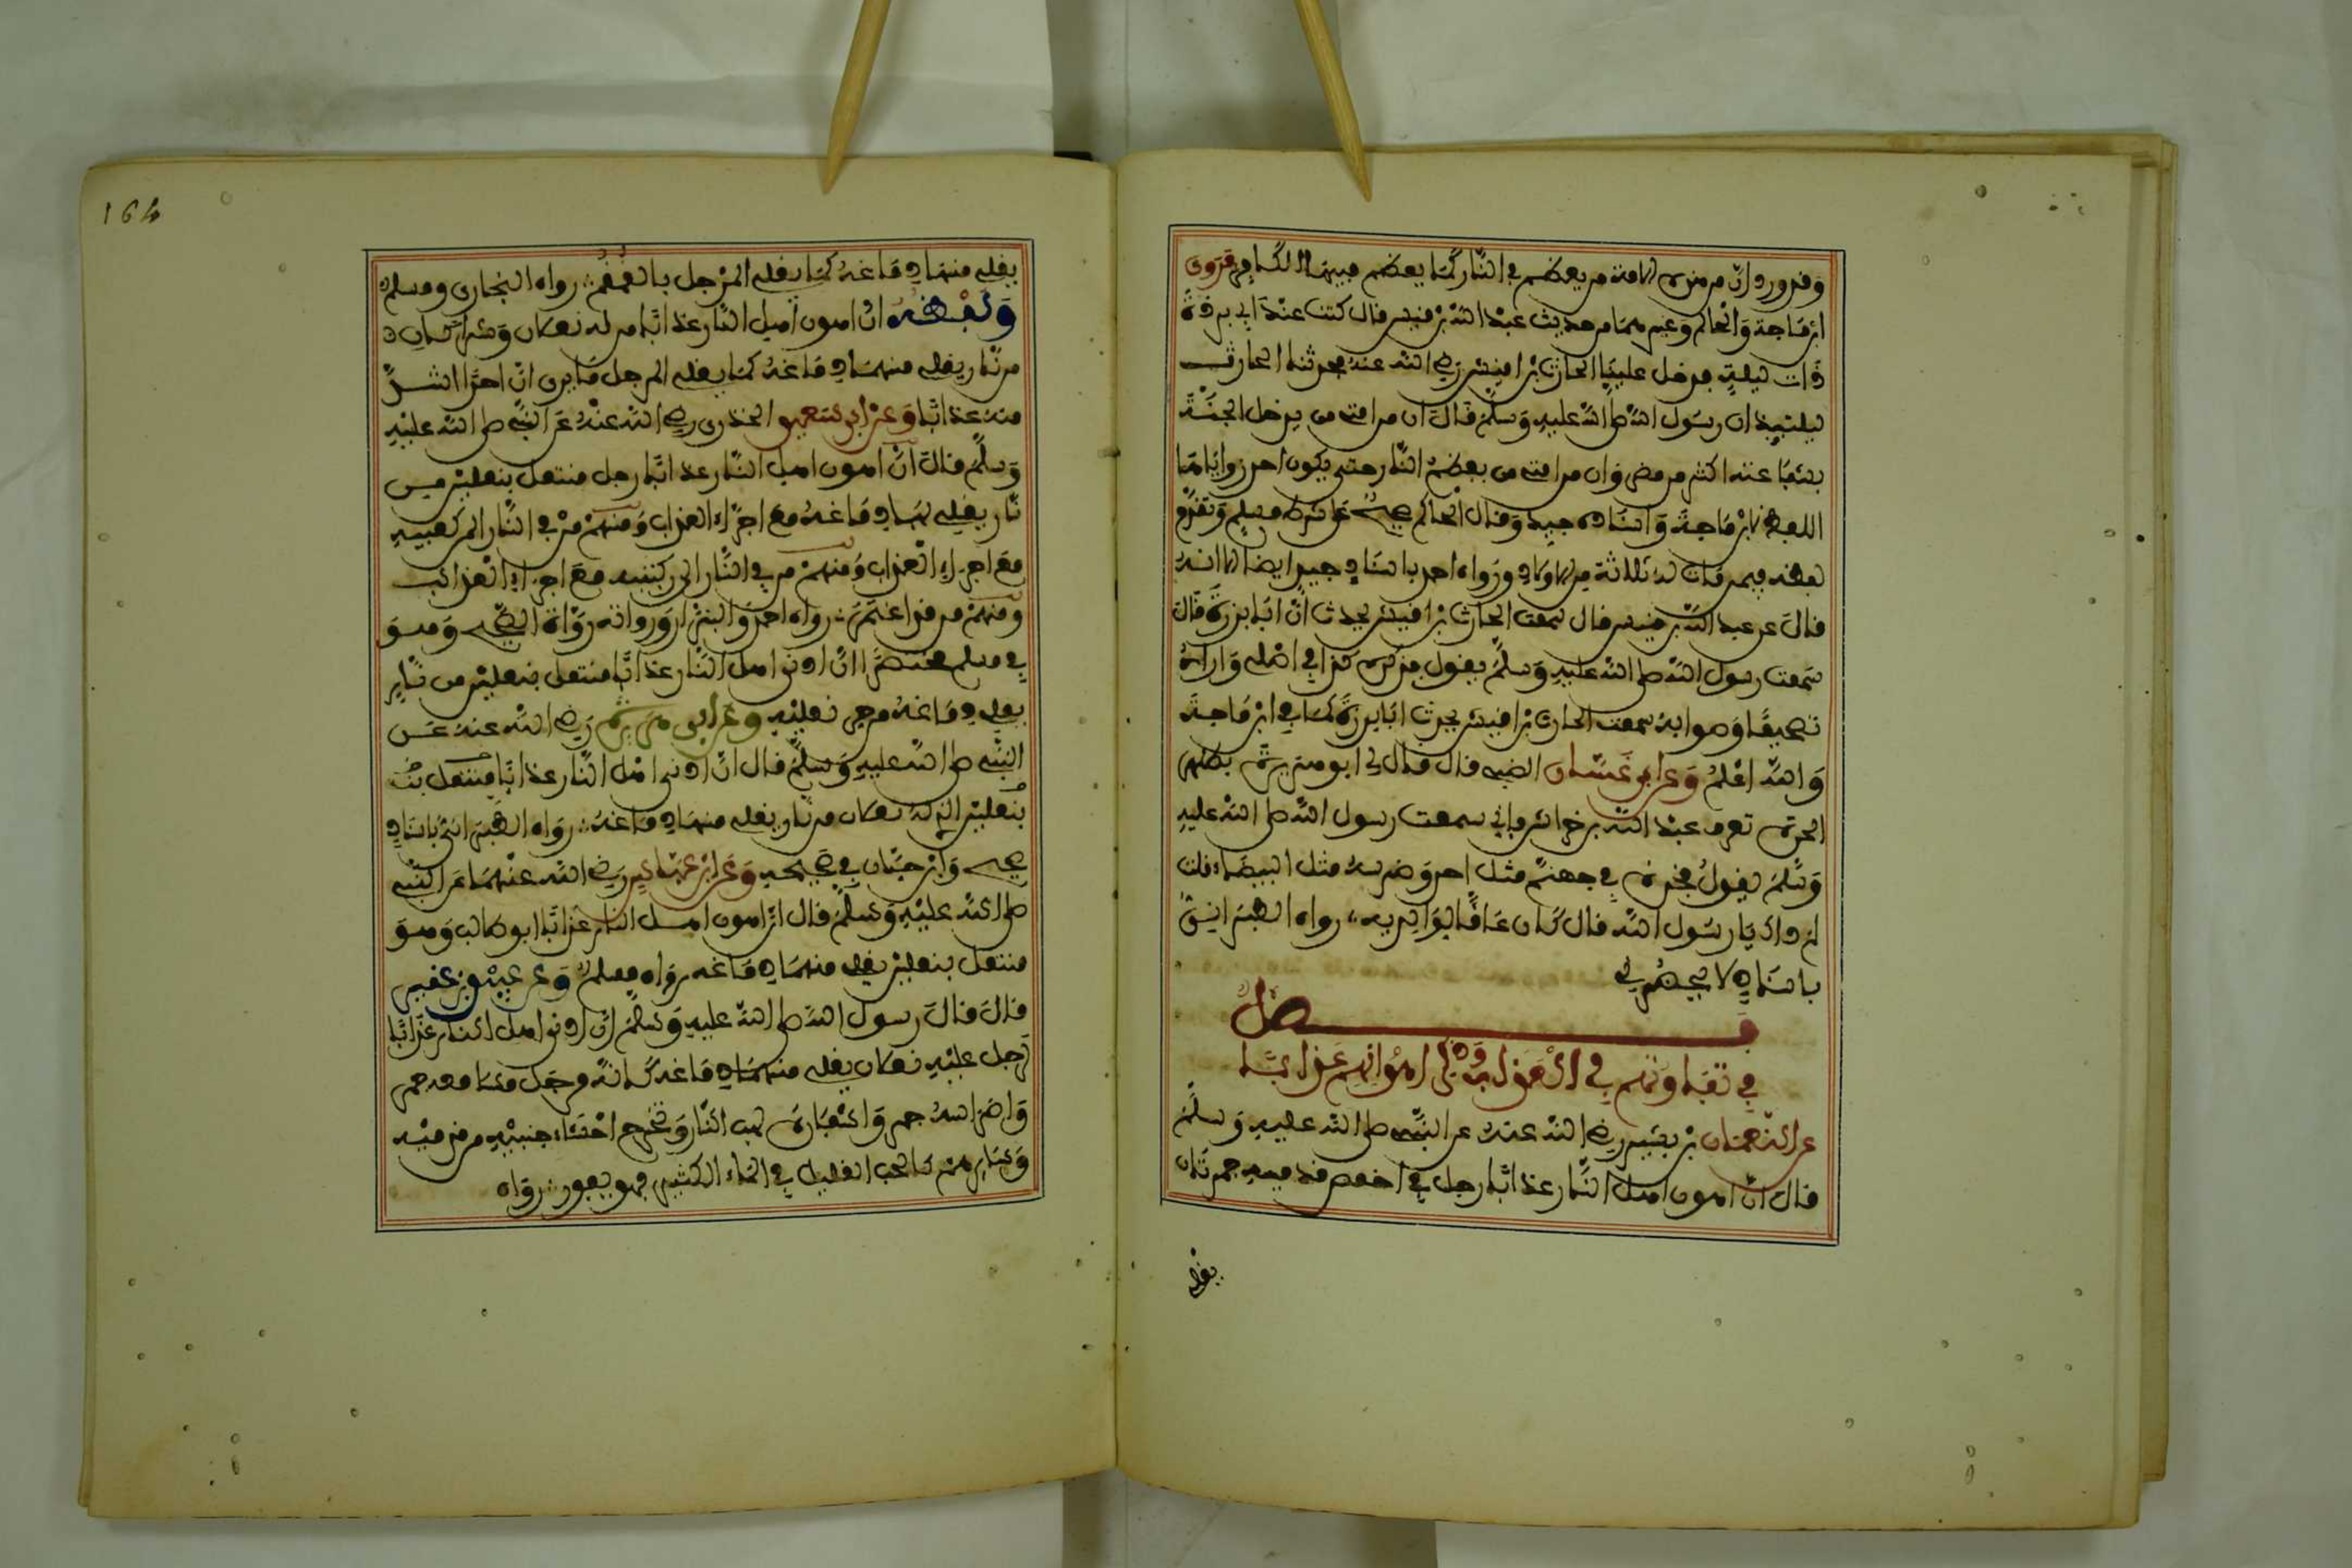 وقد ورد ان من هذه الامة من يعظم في النار كما يعظم فيها الكافر فروى
ابن ماجة والحاكم وغيرهما من حديث عبد الله بن قيس قال كنت عند ابي بردة
ذات ليلة فدخل علينا الحارث بن اقيش رضي الله عنه فحدثنا الحارث
ليلتيذ ان رسول الله صلى الله عليه وسلم قال ان من امتي من يدخل الجنة
بشفاعته اكثر من مضر وان من امتي من يعظم للنار حتى يكون احد زواياها
اللفظ لابن ماجة واسناده جيد وقال الحاكم صحيح على شرط مسلم وتقدم
لفظه فيمن مات له ثلاثة من الاولاد ورواه احمد باسناد جيد ايضا الا انه
قال عن عبد الله بن قيس قال سمعت الحارث بن اقيش يحدث ان ابا برزة قال
سمعت رسول الله صلى الله عليه وسلم يقول فذكره كذا في اصلي واراه
تصحيفا وصوابه سمعت الحارث بن اقيش يحدث ابا بردة كما في ابن ماجة
والله اعلم وعن ابي غسان الضبي قال قال لي ابو هريرة بظهر
الحرة تعرف عبد الله بن خراش فاني سمعت رسول الله صلى الله عليه
وسلم يقول فخذه في جهنم مثل احد وضرسه مثل البيضاء قلت
لم ذاك يا رسول الله قال كان عاقا بوالديه رواه الطبراني
باسناد لا يحضرني
فصل
في تفاوتهم في العذاب وذكر اهونهم عذابا
عن النعمان بن بشير رضي الله عنه عن النبي صلى الله عليه وسلم
قال ان اهون اهل النار عذابا رجل في اخمص قدميه جمرتان
يغلي
164
يغلي منهما دماغه كما يغلي المرجل بالقمقم رواه البخاري ومسلم
ولفظه ان اهون اهل النار عذابا من له نعلان وشراكان
من نار يغلي منهما دماغه كما يغلي المرجل ما يرى ان احدا اشد
منه عذابا وعن ابي سعيد الخدري رضي الله عنه عن النبي صلى الله عليه
وسلم قال ان اهون اهل النار عذابا رجل منتعل بنعلين من
نار يغلي بهما دماغه مع اجزاء العذاب ومنهم من في النار الى كعبيه
مع اجزاء العذاب ومنهم من في النار الى ركبتيه مع اجزاء العذاب
ومنهم من قد اغتمر رواه احمد والبزار ورواته رواة الصحيح وهو
في مسلم مختصرا ان ادنى اهل النار عذابا منتعل بنعلين من نار
يغلي دماغه من حر نعليه وعن ابي هريرة رضي الله عنه عن
النبي صلى الله عليه وسلم قال ان ادنى اهل النار عذابا منتعل بنـ
بنعلين الذي له نعلان من نار يغلي منهما دماغه رواه الطبراني باسناد
صحيح وابن حبان في صحيحه وعن ابن عباس رضي الله عنهما عن النبي
صلى الله عليه وسلم قال ان اهون اهل النار عذابا ابو طالب وهو
منتعل بنعلين يغلي منهما دماغه رواه مسلم وعن عبيد بن عمير
قال قال رسول الله صلى الله عليه وسلم ان ادنى اهل النار عذابا
لرجل عليه نعلان يغلي منهما دماغه كانه مرجل مسامعه جمر
واضراسه جمر واشفاره لهب النار وتخرج احشاء جنبيه من قدميه
وسايرهم كالحب القليل في الماء الكثير فهو يفور رواه